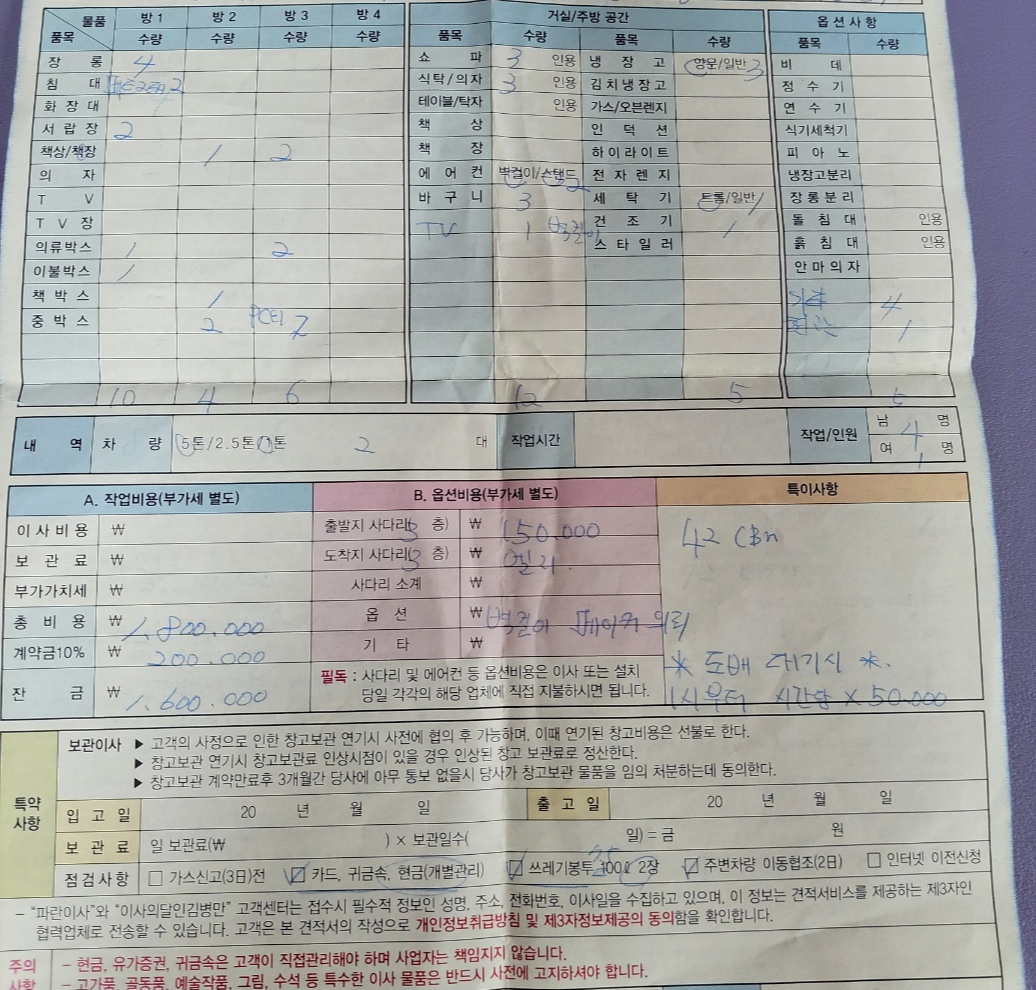 물품 품목 방 1 방 2 방 3 방 4 거실/주방 공간 옵션사항
수량 수량 수량 수량 품목 수량 품목 수량 품목 수량
장롱 4 쇼파 3 인용 냉장고 양문/일반 3 비데
침대 2 식탁/의자 3 인용 김치냉장고 정수기
화장대 테이블/탁자 인용 가스/오븐렌지 연수기
서랍장 2 책상 인덕션 식기세척기
책상/책장 1 2 책장 하이라이트 피아노
의자 에어컨 벽걸이/스탠드 2 전자렌지 냉장고분리
TV 바구니 3 세탁기 트롬/일반 1 장롱분리
TV장 TV 1 벽걸이 건조기 1 돌침대 인용
의류박스 1 2 스타일러 흙침대 인용
이불박스 1 안마의자
책박스 1 4
중박스 2 PC 1
10 4 6 12 5 5
내역 차량 5톤/2.5톤/1톤 2 대 작업시간 작업/인원 남 4 명
여 1 명
A. 작업비용(부가세 별도) B. 옵션비용(부가세 별도) 특이사항
이사비용 ₩ 출발지 사다리(3 층) ₩ 150.000 42 CBm
보관료 ₩ 도착지 사다리(3 층) ₩ 엘리.
부가가치세 ₩ 사다리 소계 ₩
총비용 ₩ 1.800.000 옵션 ₩ 벽걸이 에어커 의뢰
계약금10% ₩ 200.000 기타 ₩
잔금 ₩ 1.600.000 필독 : 사다리 및 에어컨 등 옵션비용은 이사 또는 설치
당일 각각의 해당 업체에 직접 지불하시면 됩니다.
* 도배 대기시 *.
1시부터 시간당 x 50.000
특약사항
보관이사 ▶ 고객의 사정으로 인한 창고보관 연기시 사전에 협의 후 가능하며, 이때 연기된 창고비용은 선불로 한다.
▶ 창고보관 연기시 창고보관료 인상시점이 있을 경우 인상된 창고 보관료로 정산한다.
▶ 창고보관 계약만료후 3개월간 당사에 아무 통보 없을시 당사가 창고보관 물품을 임의 처분하는데 동의한다.
입고일 20 년 월 일 출고일 20 년 월 일
보관료 일 보관료(₩ ) × 보관일수( 일) = 금 원
점검사항 □ 가스신고(3일)전 ☑ 카드, 귀금속, 현금(개별관리) ☑ 쓰레기봉투 100ℓ 2장 ☑ 주변차량 이동협조(2일) □ 인터넷 이전신청
– "파란이사"와 "이사의달인김병만" 고객센터는 접수시 필수적 정보인 성명, 주소, 전화번호, 이사일을 수집하고 있으며, 이 정보는 견적서비스를 제공하는 제3자인
협력업체로 전송할 수 있습니다. 고객은 본 견적서의 작성으로 개인정보취급방침 및 제3자정보제공의 동의함을 확인합니다.
주의사항
– 현금, 유가증권, 귀금속은 고객이 직접관리해야 하며 사업자는 책임지지 않습니다.
– 고가품, 골동품, 예술작품, 그림, 수석 등 특수한 이사 물품은 반드시 사전에 고지하셔야 합니다.